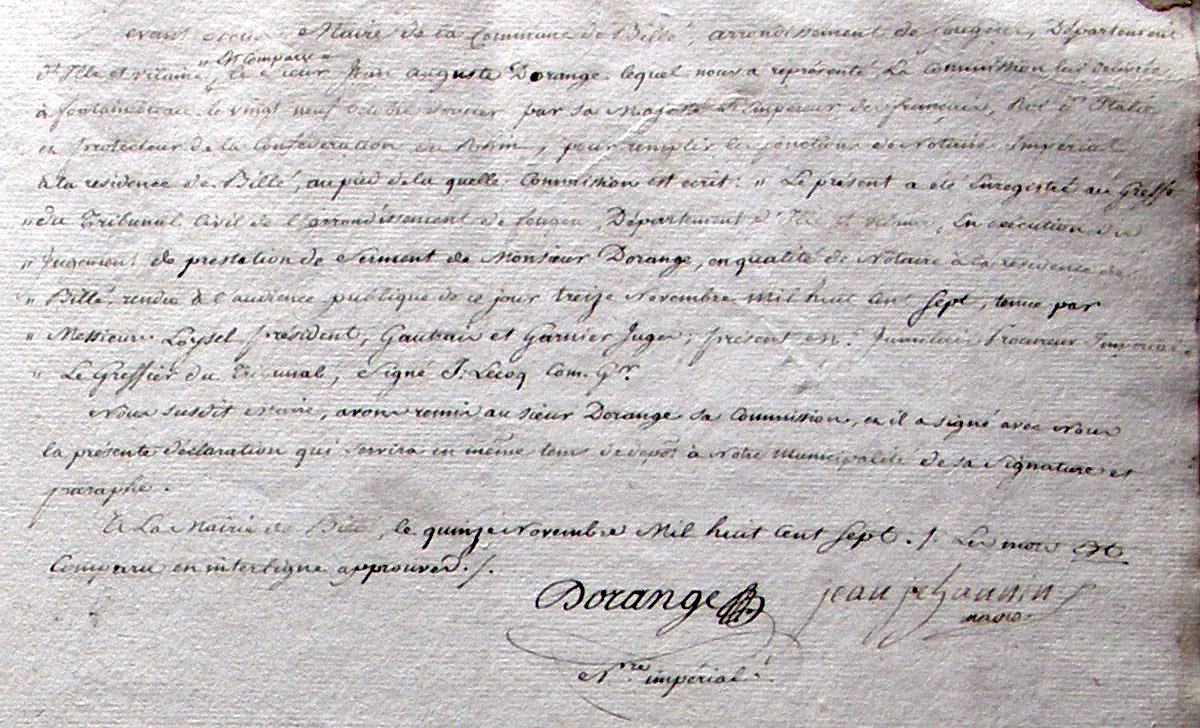 evant nous, Maire de la Commune de Billé, arrondissement de fougeres, Département
" Est Comparu "
d'Ille et vilaine, le sieur Jean auguste Dorange lequel nous a représenté La Commission lui délivrée,
à fontainebleau le vingt neuf octobre dernier par sa Majesté L'Empereur des français, Roi d'Italie,
et Protecteur de la Conféderation du Rhin, pour remplir les fonctions de Notaire Impérial
à la residence de Billé, au pied de la quelle Commission est ecrit : " Le présent a été Enregistré au Greffe
" du Tribunal Civil de l'arrondissement de fougeres, Département d'Ille et vilaine, En exécution du
" Jugement de prestation de Serment de Monsieur Dorange, en qualité de Notaire à la résidence de
" Billé rendu à l'audience publique de ce jour treize Novembre mil huit Cent Sept, tenue par
" Messieurs Loysel Président, Gaubair et Garnier Juges ; présent Procureur Impérial
" Le Greffier du Tribunal, Signé J: Lecoq Com. Gr.
Nous susdit Maire, avons remis au sieur Dorange sa Commission, et il a signé avec Nous
la présente déclaration qui servira en même tems de depôt à Notre Municipalité de sa Signature et
paraphe.
à La Mairie de Billé, le quinze Novembre Mil huit Cent Sept. /. Les mots Est
Comparu en interligne approuvés. /.
Dorange jean jehannin
maire.
Nre. impérial.